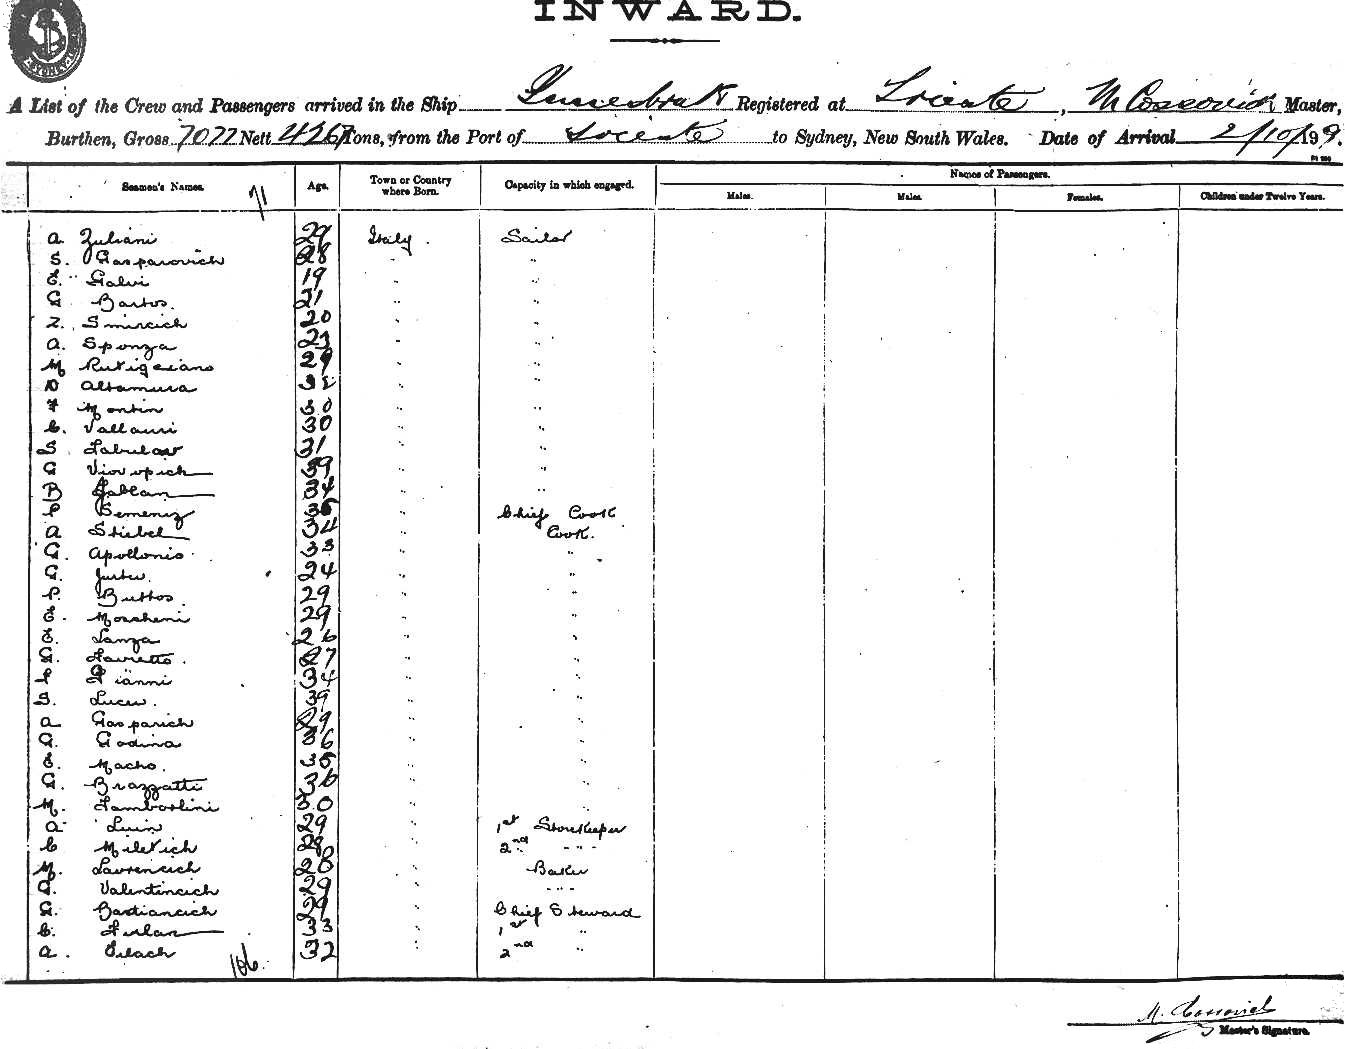 INWARD.
SYDNEY
A List of the Crew and Passengers arrived in the Ship Registered at Trieste, M Cossovich Master,
Burthen, Gross 7077 Nett 4267 Tons, from the Port of Trieste to Sydney, New South Wales. Date of Arrival 2/10/199.
Seamen's Names. 71 Age. Town or Country where Born. Capacity in which engaged. Names of Passengers.
Males. Males. Females. Children under Twelve Years.
a. Zuliani 29 Italy. Sailor
S. Gasparovich 28 " "
E. Galvi 19 " "
G Bartos. 21 " "
Z. Smircich 20 " "
a. Sponza 23 " "
M Rutigliano 29 " "
D Altamura 32 " "
F Montin 30 " "
C. Vallauri 30 " "
S. 31 " "
G 39 " "
B Jablan 34 " "
P Semeniz 35 " Chief Cook
A Stiebel 34 " Cook.
G. Apollonio 33 " "
G. 24 " "
P. Buttos. 29 " "
E. Moscheni 29 " "
E. Lanza 26 " "
G. 27 " "
P Pianni 34 " "
S. 39 " "
a Gasparich 29 " "
G. Godina 36 " "
E. Macho. 35 " "
G. Brazzatti 36 " "
M. Tambortini 30 " "
a Luin 29 " 1st Storekeeper
C Miletich 28 " 2nd " "
M. Lavrencich 28 " Baker
G. Valentincich 29 " " "
G. Bastiancich 29 " Chief Steward
C. Furlan 33 " 1st "
a. 32 " 2nd "
106.
M. Cossovich
Master's Signature.